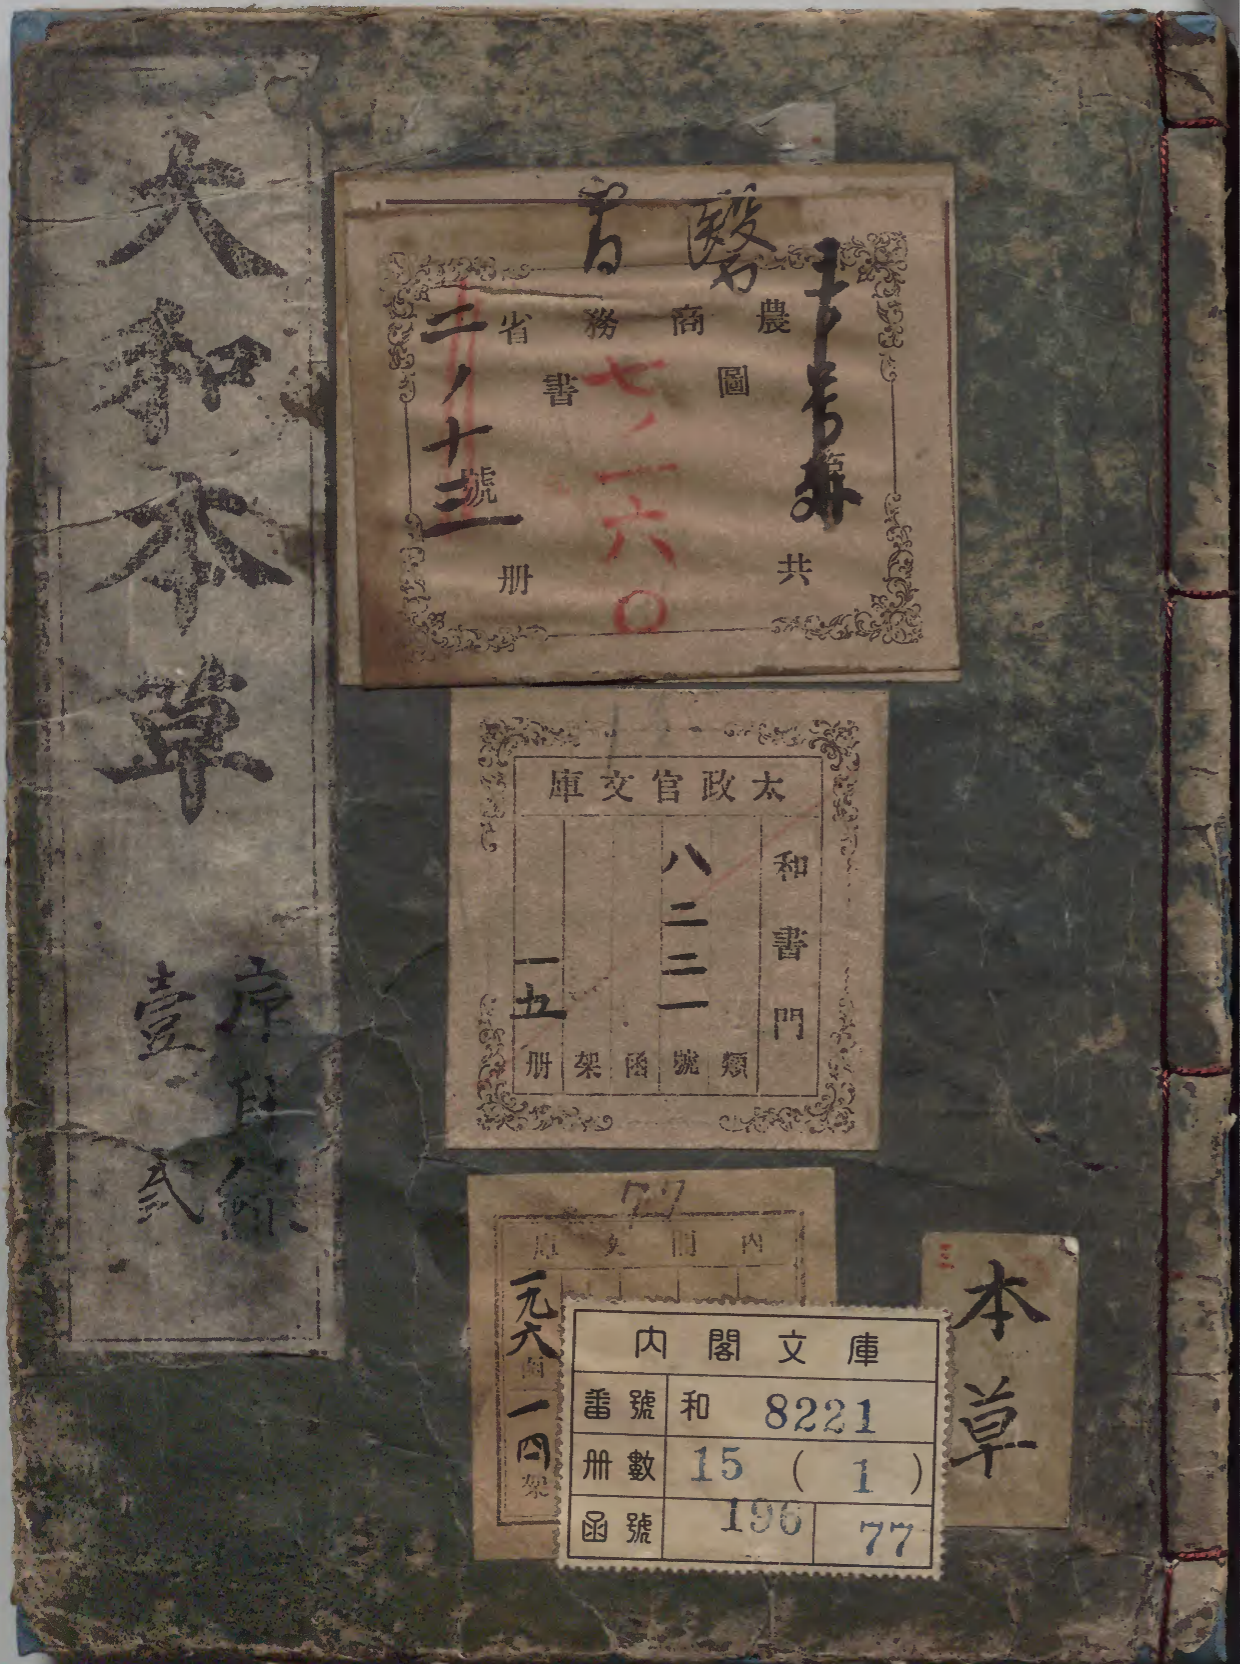 大和本草
序目録
壹
弐
農商務省
圖書
七ノ一六〇
二ノ十三
號
共
册
太政官文庫
和書門
類
八二二一
號
函
架
一五
册
77
内閣文庫
一九六
函
一四
架
内閣文庫
番號 和 8221
册數 15 ( 1 )
函號 196 77
本草